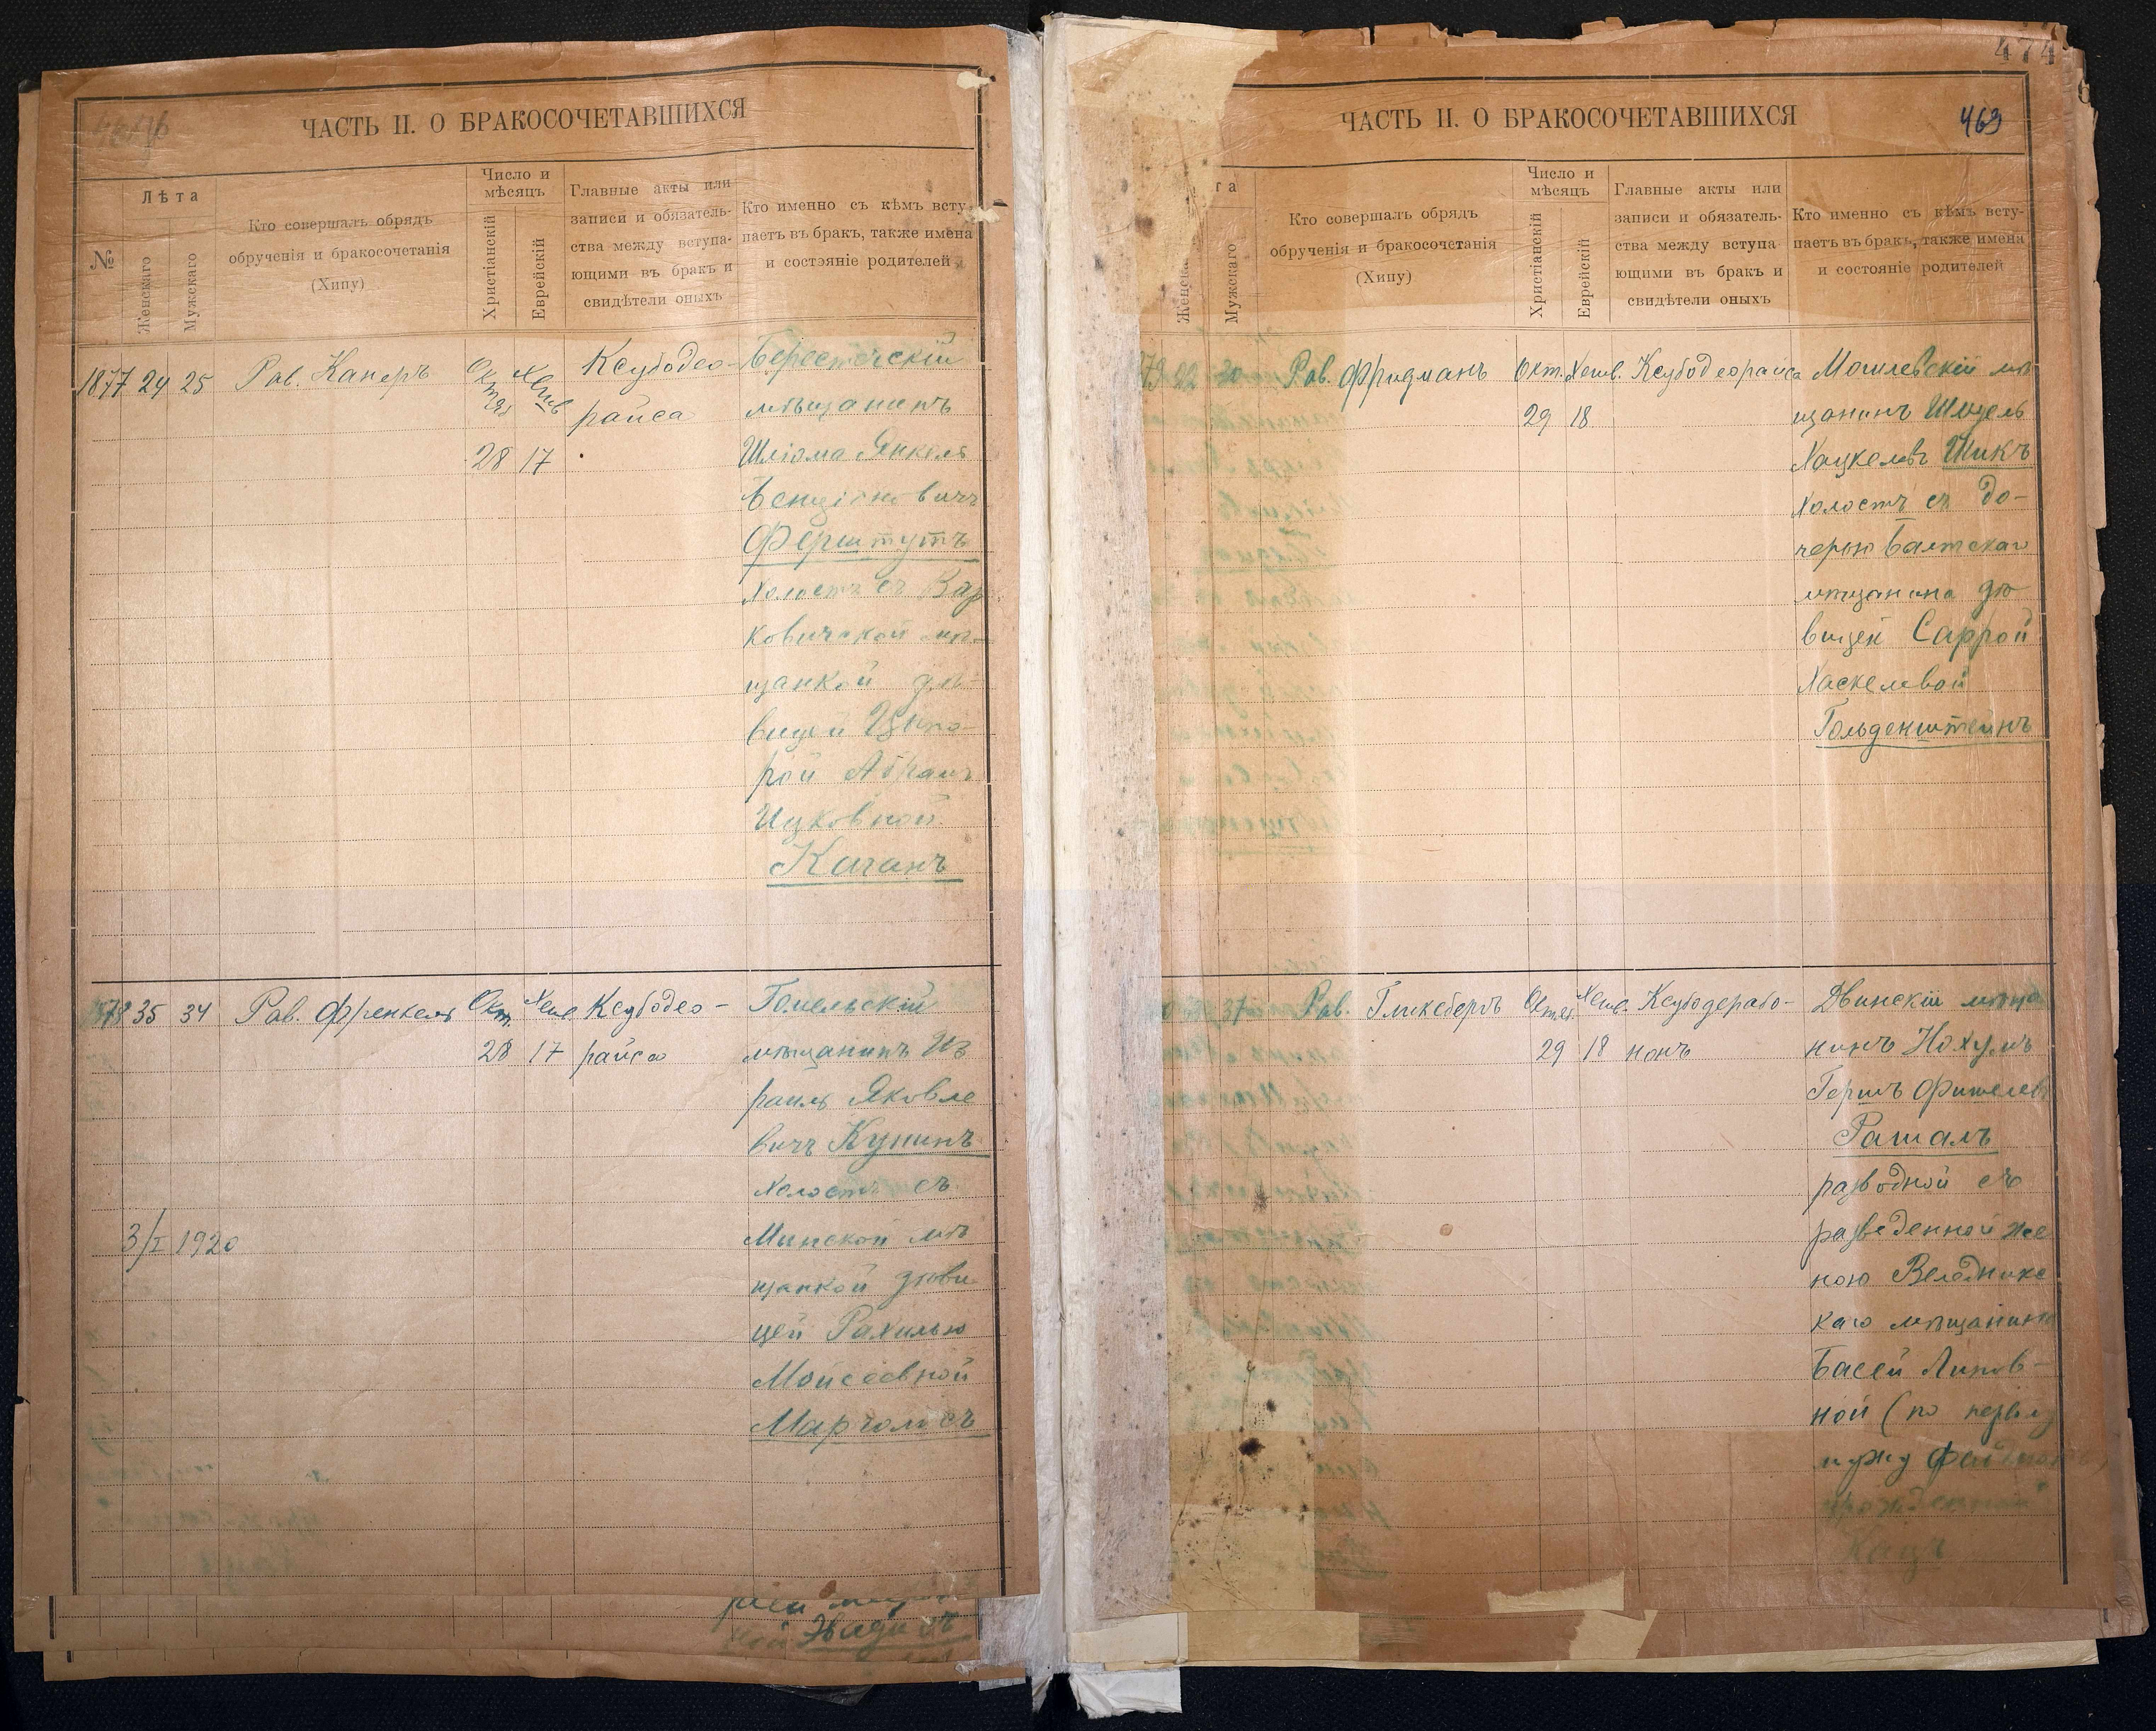 ЧАСТЬ II. О БРАКОСОЧЕТАВШИХСЯ
№
Лѣта
Женскаго
Мужскаго
Кто совершалъ обрядъ
обрученія и бракосочетанія
(Хипу)
Число и
мѣсяцъ
Христіанскій
Еврейскій
Главные акты или
записи и обязатель-
ства между вступа-
ющими въ бракъ и
свидѣтели оныхъ
Кто именно съ кѣмъ всту-
паетъ въ бракъ, также имена
и состояніе родителей
1877 24 25 Рав. Канеръ
Октяб
28
Хешв
17
Ксубодео-
райса
Берестечскій
мѣщанинъ
Шліома Янкель
Бенціоновичъ
Ферштутъ
холостъ съ Вар
ковичской мѣ-
щанкой дѣ-
вицей Ципо-
рой Абрамъ
Ицковной
Каганъ
1878 35 34 Рав. Френкель
Окт.
28
Хешв.
17
Ксубодео-
райса
Гомельскій
мѣщанинъ Из
раиль Яковле
вичъ Кунинъ
холостъ съ
Минской мѣ
щанкой дѣви
цей Рахилью
Мойсеевной
Марголисъ
3/I 1920
рей
Эвадисъ
474
ЧАСТЬ II. О БРАКОСОЧЕТАВШИХСЯ
469
та
Женска
Мужскаго
Кто совершалъ обрядъ
обрученія и бракосочетанія
(Хипу)
Число и
мѣсяцъ
Христіанскій
Еврейскій
Главные акты или
записи и обязатель-
ства между вступа
ющими въ бракъ и
свидѣтели оныхъ
Кто именно съ кѣмъ всту-
паетъ въ бракъ, также имена
и состояніе родителей
79 22 30 Рав. Фридманъ
Окт.
29
Хешв.
18
Ксубодеорайса
Могилевскій мѣ
щанинъ Шмуель
Хацкелевъ Шикъ
холостъ съ до-
черью Балтскаго
мѣщанина дѣ
вицей Саррой
Хаскелевой
Гольденштейнъ
37 Рав. Гликсбергъ
Октяб.
29
Хешв.
18
Ксубодерабо-
нонъ
Двинскій мѣща
нинъ Нохумъ
Гершъ Фишелевъ
Рашаль
разводной съ
разведенной же
ною Веледникс
каго мѣщанина
Басей Липов-
ной (по первому
мужу
урожденной
Кацъ